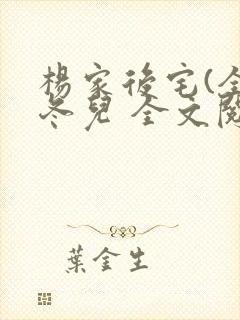 楊家後宅(全
冬兒 全文閱
葉金生